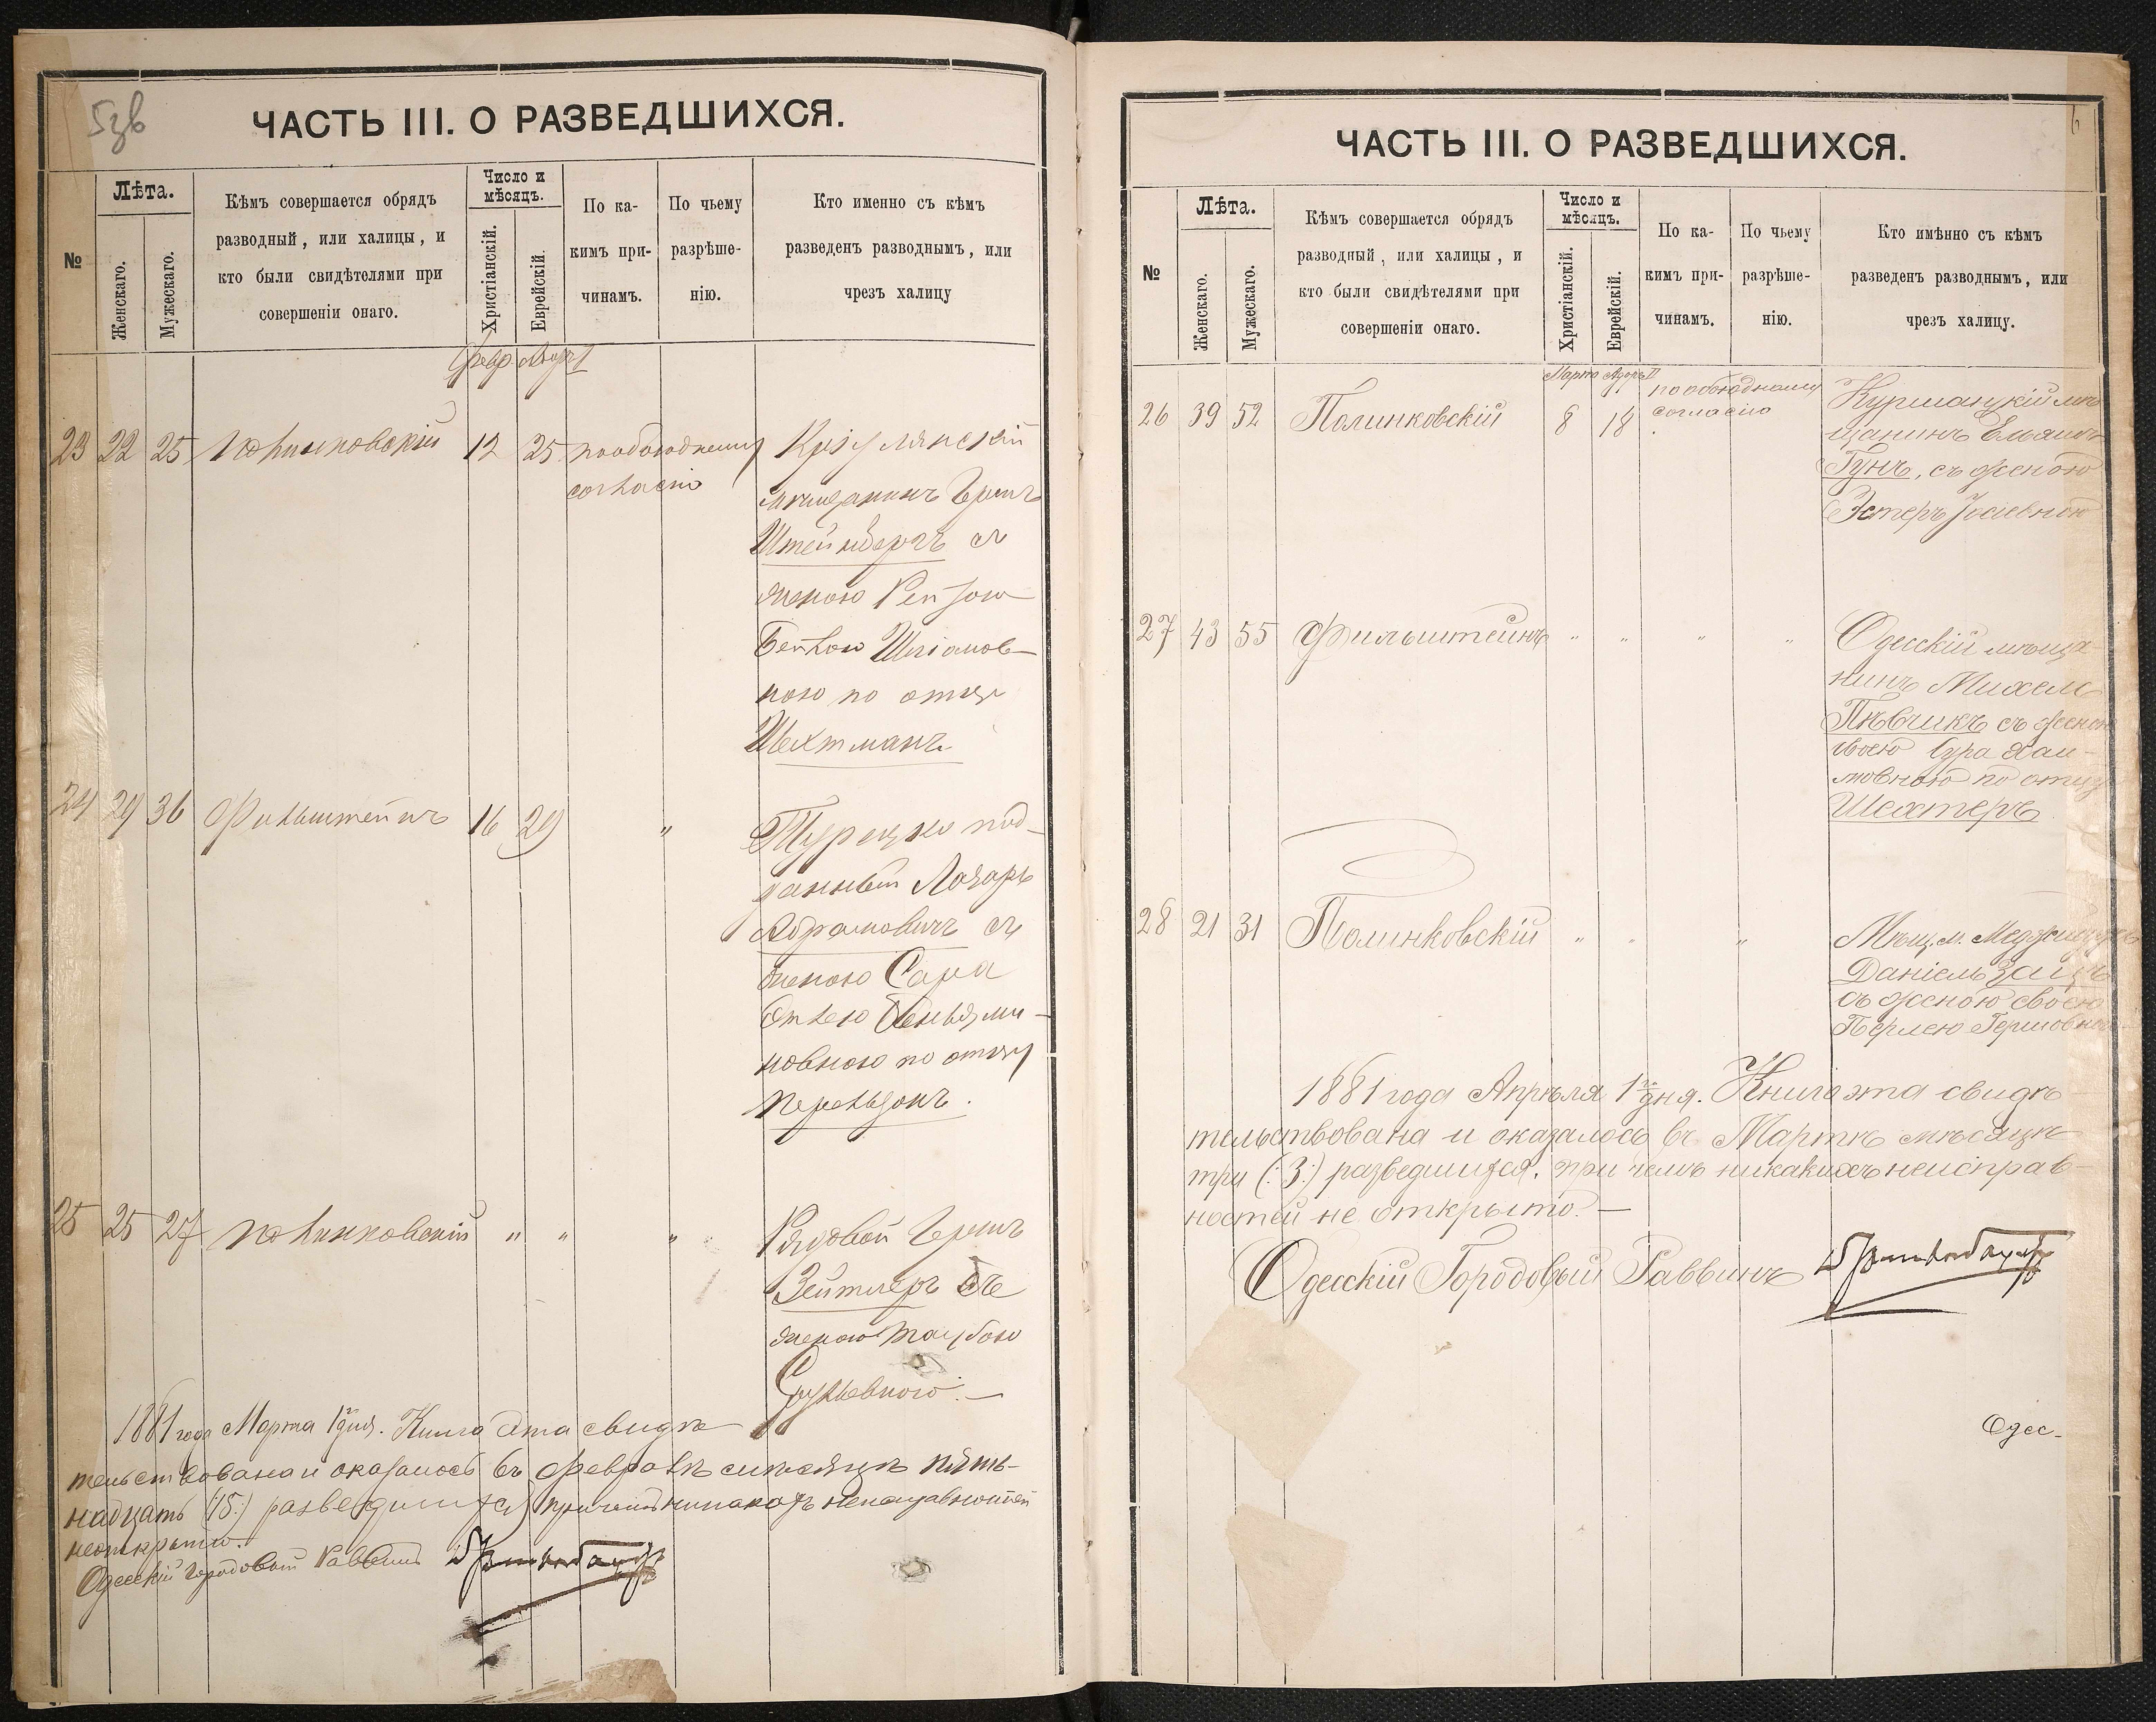 5зв
ЧАСТЬ III. О РАЗВЕДШИХСЯ.
№
Лѣта.
Женскаго.
Мужескаго.
Кѣмъ совершается обрядъ
разводный, или халицы, и
кто были свидѣтелями при
совершеніи онаго.
Число и
мѣсяцъ.
Христіанскій.
Еврейскій.
По ка-
кимъ при-
чинамъ.
По чьему
разрѣше-
нію.
Кто именно съ къмъ
разведенъ разводнымъ, или
чрезъ халицу
Февр
23 22 25 Полинковскій 12 25 по обоюдному
согласію
мѣщанинъ Гершъ
Штейнбергъ съ
женою Рейзою
Бейлою
ною по отцу
Шехтманъ
24 29 36 Фильштейнъ 16 29 "
Турецко под-
данный Лазарь
Абрамовичъ съ
женою Сара
Этлею Веньями-
новною по отцу
25 25 27 Полинковскій " " "
Рядовой Гершъ
Зейтлеръ съ
женою Таубою
1881 года Марта 1го дня. Книга эта свидѣ
тельствована и оказалось въ Февралѣ мѣсяцѣ пять-
надцать (:15:) разведшихся, причемъ никакихъ неисправностей
неоткрыто.
Одесскій Городовый Раввинъ
6
ЧАСТЬ III. О РАЗВЕДШИХСЯ.
№
Лѣта.
Женскаго.
Мужескаго.
Кѣмъ совершается обрядъ
разводный, или халицы, и
кто были свидѣтелями при
совершеніи онаго.
Число и
мѣсяцъ.
Христіанскій.
Еврейскій.
По ка-
кимъ при-
чинамъ.
По чьему
разрѣше-
нію.
Кто имѣнно съ кѣмъ
разведенъ разводнымъ, или
чрезъ халицу.
Марта Адоръ II
26 39 52 Полинковскій 8 18 по обоюдному
согласію
мѣ
щанинъ
Гунъ, съ женою
Эстеръ
27 43 55 Фильштейнъ " " " "
Одесскій мѣща-
нинъ Михель
Пѣвчикъ съ женою
своею Сура Хаи-
мовною по отцу
Шехтеръ
28 21 31 Полинковскій " " "
Мѣщ. м.
Даніель Заицъ
съ женою своею
Перлею Гершовною
1881 года Апрѣля 1го дня. Книга эта свидѣ
тельствована и оказалось въ Мартѣ мѣсяцѣ
три (:3:) разведшихся, при чемъ никакихъ неисправ-
ностей не открыто. —
Одесскій Городовый Раввинъ
Одес-